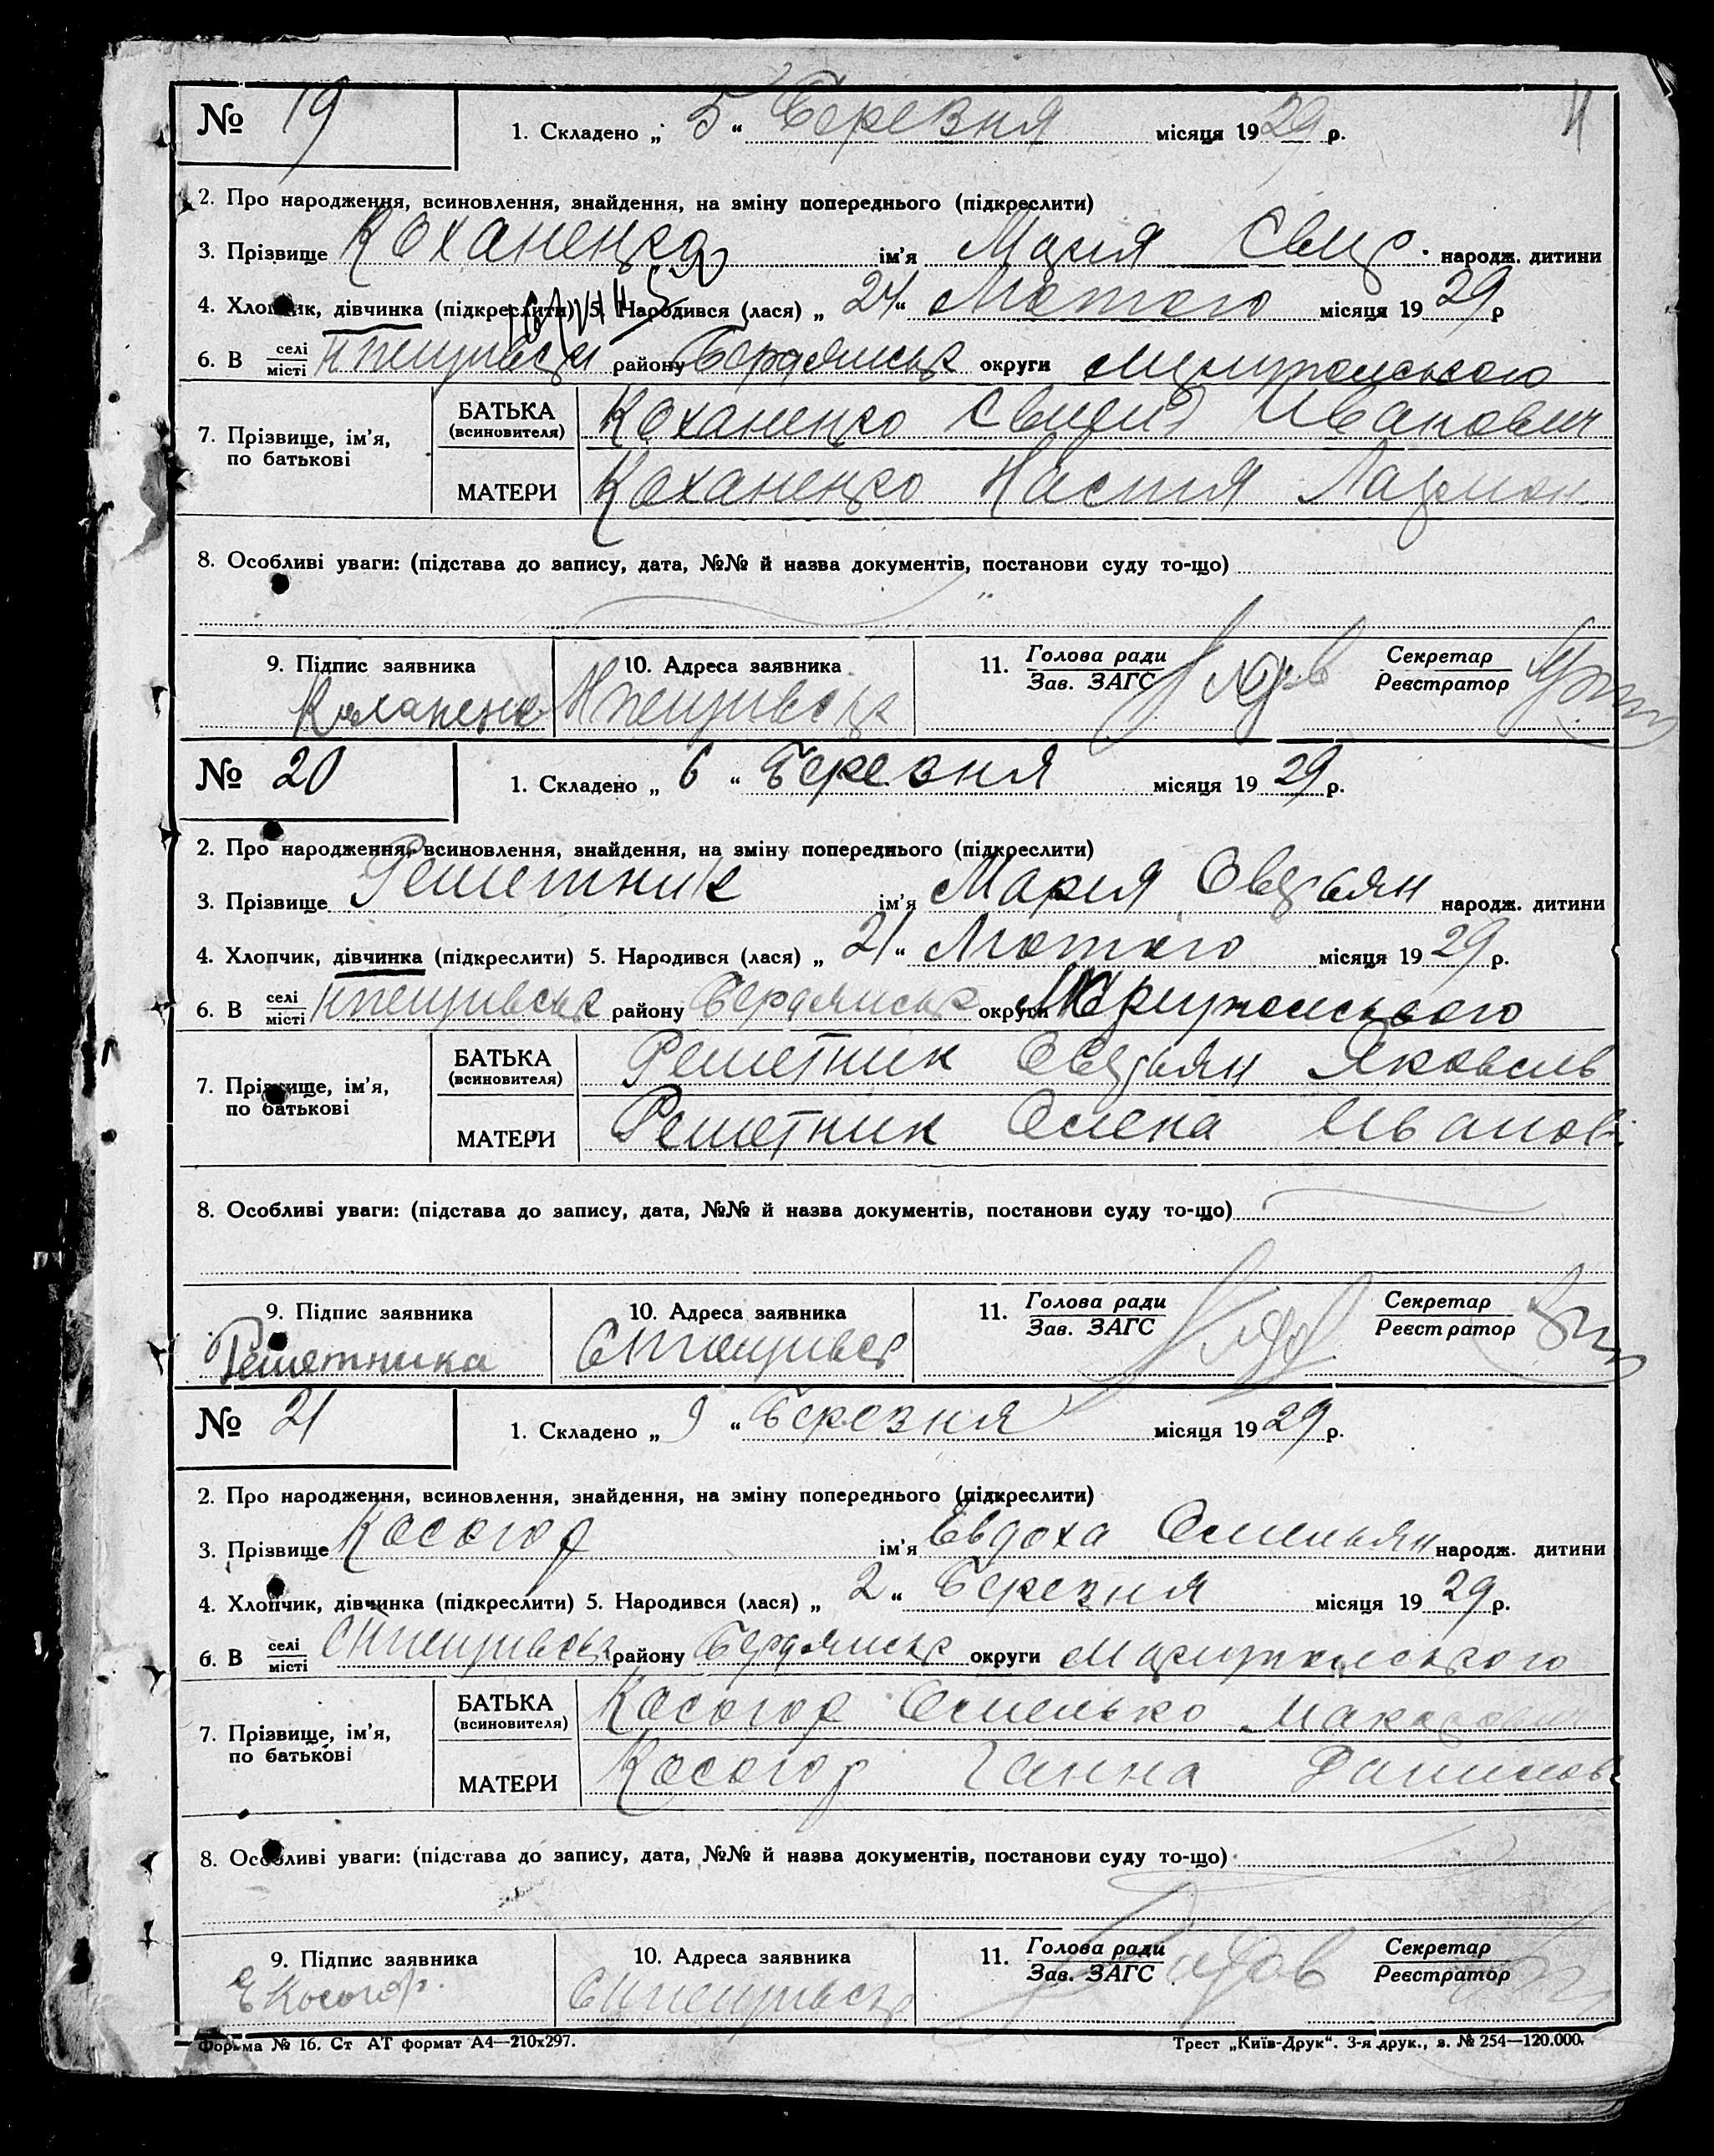 № 19 1. Складено „ 5 “ Березня місяця 1929 р.
2. Про народження, всиновлення, знайдення, на зміну попереднього (підкреслити)
3. Прізвище Коханенко ім'я Марія народж. дитини
4. Хлопчик, дівчинка (підкреслити) 5. Народився (лася) „ 24 “ Лютого місяця 1929 р
6. В селі місті району Бердянськ округи Маріупольського
7. Прізвище, ім'я, по батькові
БАТЬКА (всиновителя) Коханенко Иванович
МАТЕРИ Коханенко Настя Ларион
8. Особливі уваги: (підстава до запису, дата, №№ й назва документів, постанови суду то-що)
9. Підпис заявника 10. Адреса заявника 11. Голова ради Зав. ЗАГС Секретар Реєстратор
Коханенко
№ 20 1. Складено „ 6 “ Березня місяця 1929 р.
2. Про народження, всиновлення, знайдення, на зміну попереднього (підкреслити)
3. Прізвище Решетник ім'я Марія Овдьян народж. дитини
4. Хлопчик, дівчинка (підкреслити) 5. Народився (лася) „ 21 “ Лютого місяця 1929 р.
6. В селі місті району Бердянськ округи Маріупольського
7. Прізвище, ім'я, по батькові
БАТЬКА (всиновителя) Решетник Овдьян Яковлев
МАТЕРИ Решетник Олена Иванов
8. Особливі уваги: (підстава до запису, дата, №№ й назва документів, постанови суду то-що)
9. Підпис заявника 10. Адреса заявника 11. Голова ради Зав. ЗАГС Секретар Реєстратор
Решетника
№ 21 1. Складено „ 9 “ Березня місяця 1929 р.
2. Про народження, всиновлення, знайдення, на зміну попереднього (підкреслити)
3. Прізвище Косогор ім'я Евдоха Омельян народж. дитини
4. Хлопчик, дівчинка (підкреслити) 5. Народився (лася) „ 2 “ Березня місяця 1929 р.
6. В селі місті району Бердянськ округи Маріупольського
7. Прізвище, ім'я, по батькові
БАТЬКА (всиновителя) Косогор Омелько Макарович
МАТЕРИ Косогор Ганна Данилов
8. Особливі уваги: (підстава до запису, дата, №№ й назва документів, постанови суду то-що)
9. Підпис заявника 10. Адреса заявника 11. Голова ради Зав. ЗАГС Секретар Реєстратор
Е Косогор.
Форма № 16. Ст АТ формат А4—210х297. Трест „Київ-Друк“. 3-я друк., з. № 254—120.000.